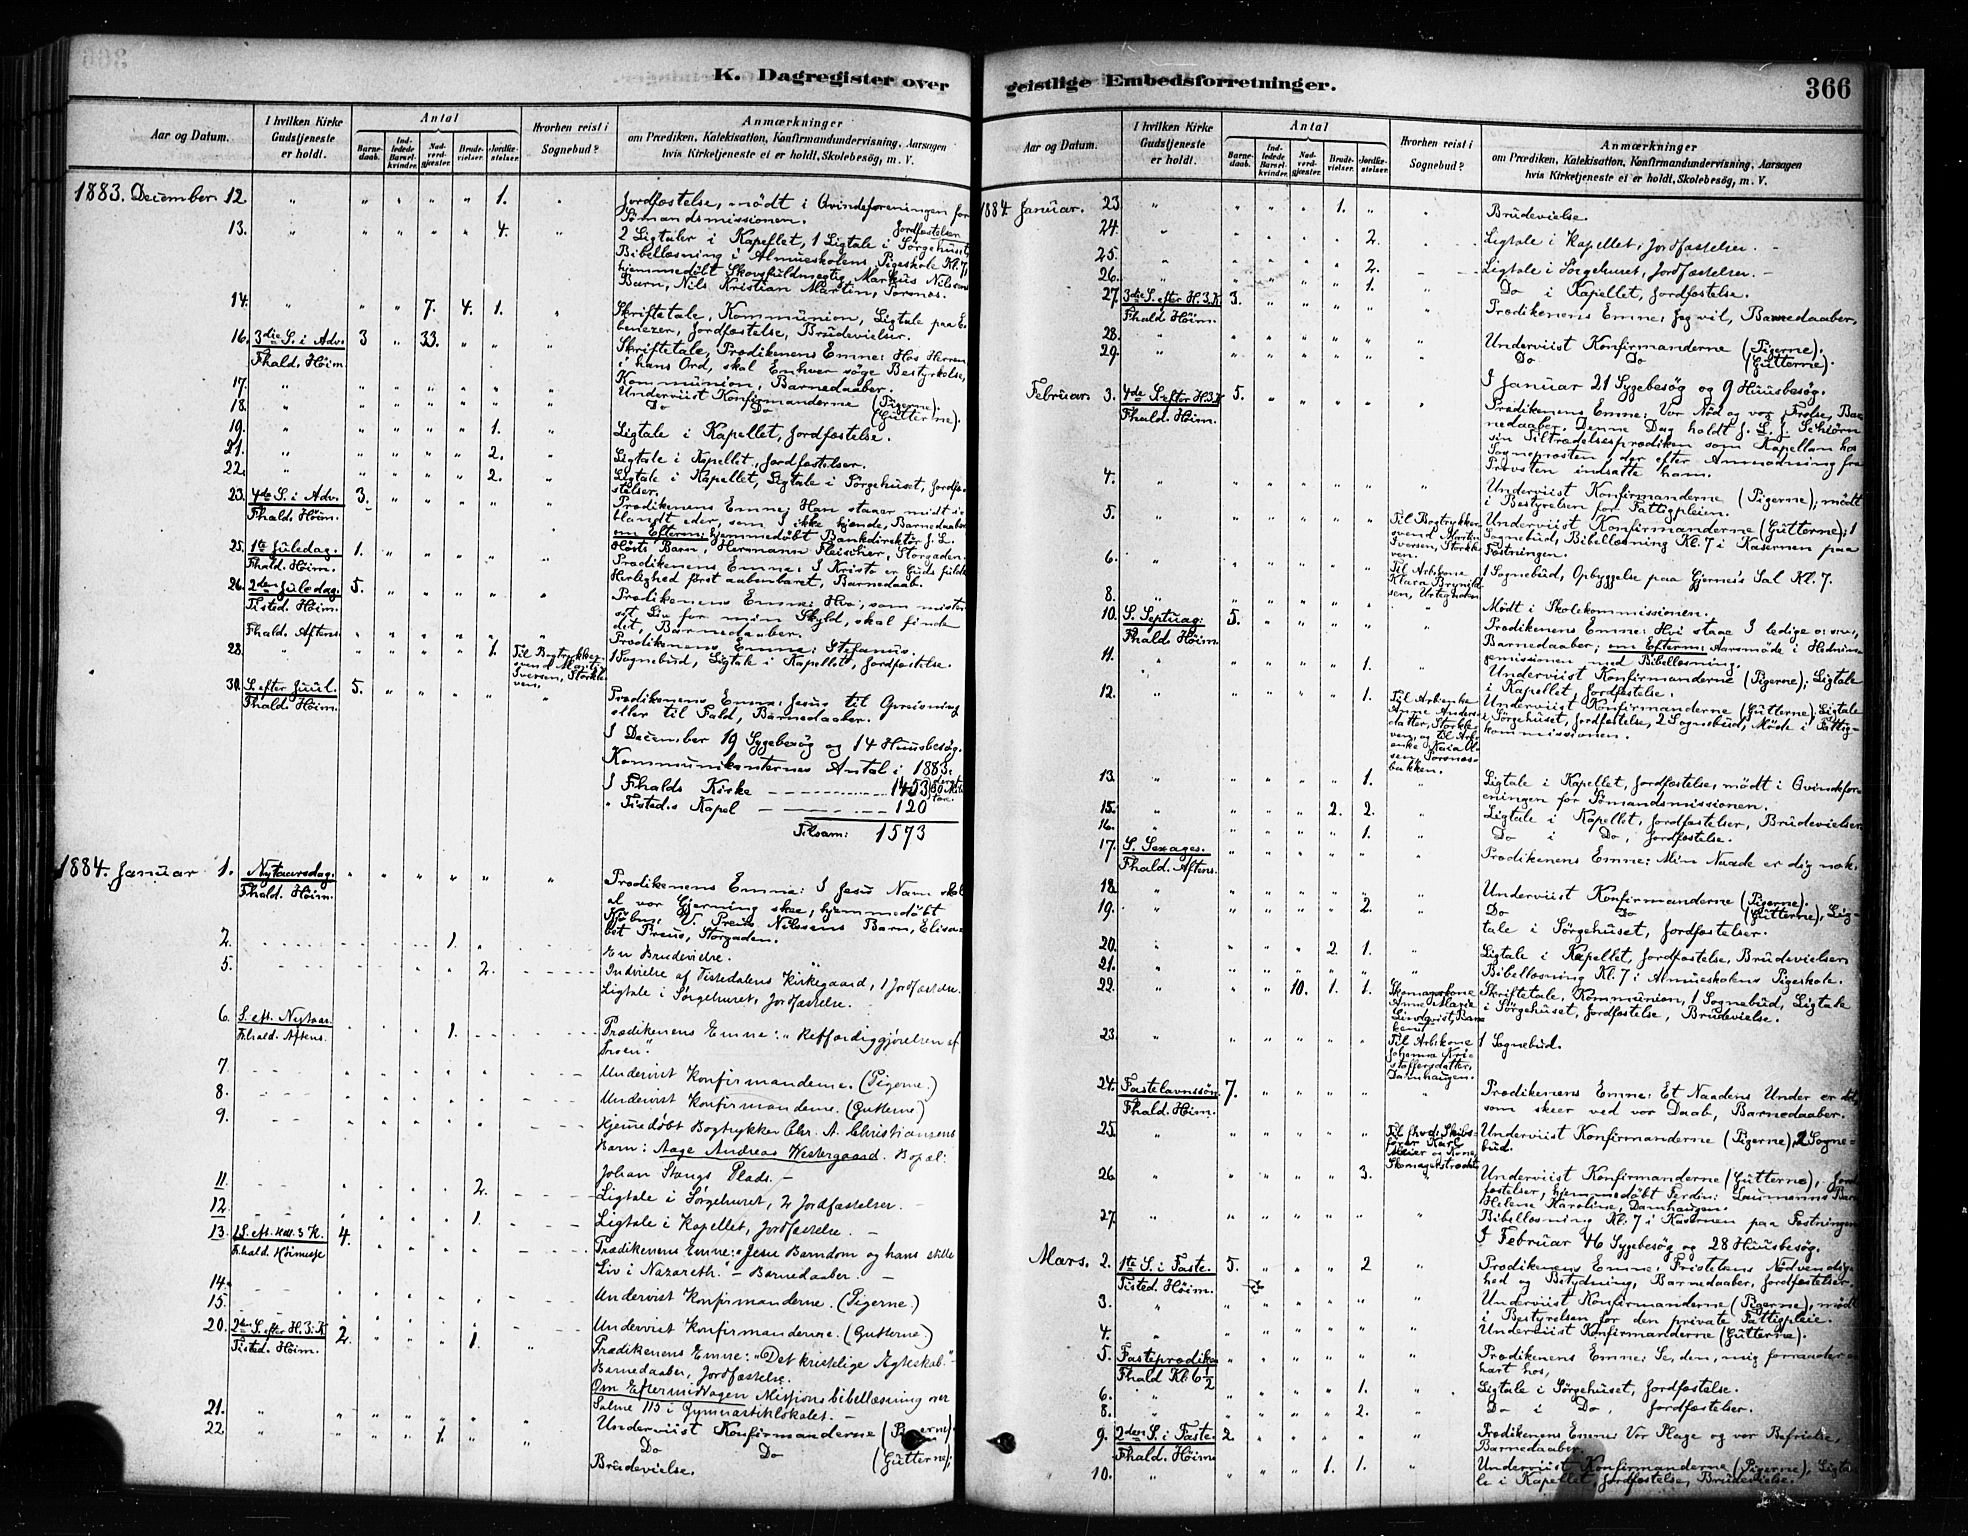 K. Dagregister over
geistlige Embedsforretninger.
366
Aar og Datum.
I hvilken Kirke
Gudstjeneste
er holdt.
Antal
Barne-
daab.
Ind-
ledede
Barsel-
kvinder.
Nad-
verd-
gjæster.
Brude-
vielser.
Jordfæ-
stelser.
Hvorhen reist i
Sognebud?
Anmærkninger
om Prædiken, Katekisation, Konfirmandundervisning, Aarsagen
hvis Kirketjeneste ei er holdt, Skolebesøg, m. V.
1883. December 12. " " " " " 1. " Jordfæstelse, mødt i Qvindeforeningen for
Sømandsmissionen.
13. " " " " " 4. " 2 Ligtaler i Kapellet, 1 Ligtale i Sørgehuset, Jordfæstelser
Bibellæsning i Almueskolens Pigeskole Kl. 7,
hjemmedøbt Skovfuldmægtig Markus Nilsens
Barn, Nils Kristian Martin, Torsnæs.
14. " " " 7. 4. 1. " Skriftetale, Kommunion, Ligtale paa E-
benezer, Jordfæstelse, Brudevielser.
16. 3die S. i Adv. 3 " 33. " " " Skriftetale, Prædikenens Emne: Hos Herren
Fhald. Höim. i hans Ord, skal Enhver søge Bestyrkelse,
Kommunion, Barnedaaber.
17. " " " " " " " Underviist Konfirmanderne (Pigerne).
18. " " " " " " " Do Do (Gutterne).
19. " " " " " 1. " Ligtale i Kapellet, Jordfæstelse.
21. " " " " " 2. " Ligtale i Kapellet, Jordfæstelser.
22. " " " " " 2. " Ligtale i Kapellet, Ligtale i Sørgehuset, Jordfæ-
stelser.
23. 4de S. i Adv. 3. " " " " " Prædikenens Emne: Han staaer midt i
Fhald. Höim. blandt eder, som I ikke kjende, Barnedaaber
om Efterm: hjemmedøbt Bankdirektør J. L.
Høsts Barn, Hermann Fleischer, Storgaden.
25. 1ste Juledag. 1. " " " " " Prædikenens Emne: I Kristo er Guds fulde
Fhald. Höim. Herlighed først aabenbaret, Barnedaab.
26. 2den Juledag. 5. " " " " " Prædikenens Emne: Hvo, som mister
Tisted. Höim. sit Liv for min Skyld, skal finde
det, Barnedaaber.
Fhald. Aftens. " " " " " " Prædikenens Emne: Stefanus.
28. " " " " 1. Til Bogtrykker- 1 Sognebud, Ligtale i Kapellet, Jordfæstelse
svend Martin
Iversen, Storkle-
ven.
30. S. efter Juul. 5. " " " " " Prædikenens Emne: Jesus til Opreisning
Fhald. Höim. eller til Fald, Barnedaaber.
I December 19 Sygebesøg og 14 Huusbesøg.
Kommunikanternes Antal i 1883.
I Fhalds Kirke 1453
" Tistedls Kapel 120
Tilsam: 1573
1884. Januar 1. Nytaarsdag. " " " " " " Prædikenens Emne: I Jesu Navn skal
Fhald. Höim. al vor Gjerning skee, hjemmedøbt
Kjøbm: V. Preus Nilssens Barn, Elisa-
bet Preus, Storgaden.
2. 1. En Brudevielse.
5. 2. Indvielse af Tistedalens Kirkegaard, 1 Jordfæstelse.
Ligtale i Sørgehuset, Jordfæstelse.
6. S. eft. Nytaar. 1. Prædikenens Emne: "Retfærdiggjørelsen af
Fhald. Aftens. Troen".
7. Undervist Konfirmanderne. (Pigerne.)
8. Undervist Konfirmanderne. (Gutterne)
9. Hjemmedøbt Bogtrykker Chr. A. Christiansens
Barn: Aage Andreas Westergaard. Bopæl:
Johan Stangs Plads.
11. 2. Ligtale i Sørgehuset, 2 Jordfæstelser.
12. 1. Ligtale i Kapellet, Jordfæstelse.
13. 1 S. eft. Hel. 3 K. 4. Prædikenens Emne: "Jesu Barndom og hans stille
Fhald. Höimesse Liv i Nazareth." – Barnedaaber.
14. Undervist Konfirmanderne. (Pigerne.)
15. Undervist Konfirmanderne. (Gutterne)
20. 2den S. efter H. 3. K. 2. 1. Prædikenens Emne: "Det kristelige Ægteskab."
Tisted. Höim. Barnedaaber, Jordfæstelse.
Om Eftermiddagen Missions bibellæsning over
Salme 115 i Gymnastiklokalet.
21. " " " " " " " Underviist Konfirmanderne (Pigerne).
22. " " " " 1. " " Do Do (Gutterne),
Brudevielse.
Aar og Datum.
I hvilken Kirke
Gudstjeneste
er holdt.
Antal
Barne-
daab.
Ind-
ledede
Barsel-
kvinder.
Nad-
verd-
gjæster.
Brude-
vielser.
Jordfæ-
stelser.
Hvorhen reist i
Sognebud?
Anmærkninger
om Prædiken, Katekisation, Konfirmandundervisning, Aarsagen
hvis Kirketjeneste ei er holdt, Skolebesøg, m. V.
1884 Januar. 23. " " " " 1. " " Brudevielse.
24. " " " " " 2. Ligtale i Kapellet, Jordfæstelser.
25. " " " " " 2. Ligtale i Sørgehuset, Jordfæstelser.
26. " " " " " 1. Do i Kapellet, Jordfæstelse.
27. 3die S. efter H. 3. K. 3. " " " " " Prædikenens Emne: Jeg vil, Barnedaaber.
Fhald. Höim.
28. " " " " " " " Underviist Konfirmanderne (Pigerne).
29. " " " " " " " Do Do (Gutterne).
I Januar 21 Sygebesøg og 9 Huusbesøg.
Februar. 3. 4de S. efter H. 3. K. 5. " " " " " Prædikenens Emne: Vor Nød og vor Frelse, Bar-
Fhald. Höim. nedaaber. Denne Dag holdt J. L. J. Schiørn
sin Tiltrædelsesprædiken som Kapellan hos
Sognepræsten, der efter Anmodning fra
Provsten indsatte ham.
4. " " " " " " " Underviist Konfirmanderne (Pigerne); mødt
i Bestyrelsen for Fattigpleien.
5. " " " " " " Til Bogtrykker- Underviist Konfirmanderne (Gutterne); 1
svend Martin Sognebud, Bibellæsning Kl. 7 i Kasernen paa
Iversen, Storkle- Fæstningen.
ven.
6. " " " " " " Til Arbkone 1 Sognebud, Opbyggelse paa Gjernes's Sal Kl. 7.
Klara Brynild-
sen, Urtegaden
8. " " " " " " " Mødt i Skolekommissionen.
10. S. Septuag: 5. " " " " " Prædikenens Emne: Hvi staae I ledige o: s: v:,
Fhald. Höim. Barnedaaber; om Efterm: Aarsmøde i Hednin-
gemissionen med Bibellæsning.
11. " " " " " 1. " Underviist Konfirmanderne (Pigerne); Ligtale
i Kapellet, Jordfæstelse.
12. " " " " " 1. Til Arbenke Underviist Konfirmanderne (Gutterne); Ligtale
Anne Anders- i Sørgehuset, Jordfæstelse, 2 Sognebud, Møde i Fattig-
datter, Storkle- kommissionen.
ven, og til Arb-
enke Maia Ol-
sen, Torsnæs-
bakken.
13. " " " " " 1. " Ligtale i Kapellet, Jordfæstelse, mødt i Qvindefor-
eningen for Sømandsmissionen.
15. " " " " 2. 2. " Ligtale i Kapellet, Jordfæstelser, Brudevielser.
16. " " " " " 1. " Do i Do, Jordfæstelse.
17. S. Sexages. " " " " " " Prædikenens Emne: Min Naade er dig nok.
Fhald. Aftens.
18. " " " " " " " Underviist Konfirmanderne (Pigerne).
19. " " " " " 2. " Do Do (Gutterne), Lig-
tale i Sørgehuset, Jordfæstelser.
20. " " " " 2. 1. " Ligtale i Kapellet, Jordfæstelse, Brudevielser
21. " " " " " " " Bibellæsning Kl. 7 i Almueskolens Pigeskole.
22. " " " 10. 1. 1. Skomagerkone Skriftetale, Kommunion, 1 Sognebud, Ligtale
Anne Marie i Sørgehuset, Jordfæstelse, Brudevielse.
Lindqvist, Ban-
ken
23. " " " " " " Til Arbkone 1 Sognebud.
Johanna Kri-
stoffersdatter,
Damhaugen.
24. Fastelavnssøn. 7. " " " " " Prædikenens Emne: Et Naadens Under er det,
Fhald. Höim. som skeer ved vor Daab, Barnedaaber.
25. " " " " " " Til fhv: Skibs- Underviist Konfirmanderne (Pigerne), 2 Sogne-
fører Karl bud.
Meier og Kone,
Skomagerstrædet
26. " " " " " 3. " Underviist Konfirmanderne (Gutterne), Jord-
fæstelser, hjemmedøbt Ferdin: Laumanns Barn
Helene Karoline, Damhaugen.
27. " " " " " " " Bibellæsning Kl. 7 i Kasernen paa Fæstningen
I Februar 46 Sygebesøg og 28 Huusbesøg.
Mars. 2. 1ste S. i Faste. 5. " " " 2 " Prædikenens Emne: Fristelsens Nødvendig-
Tisted. Höim. hed og Betydning, Barnedaaber, Jordfæstelser.
3. " " " " " " " Underviist Konfirmanderne (Pigerne), mødt
i Bestyrelsen for den private Fattigpleie.
4. " " " " " " " Underviist Konfirmanderne (Gutterne).
5. Fasteprædiken " " " " " " Prædikenens Emne: Se, den, mig forraader er
Fhald Kl. 6 1/2 hart hos,
6. " " " " " 1. " Ligtale i Sørgehuset, Jordfæstelse.
8. " " " " " 2. " Do i Do, Jordfæstelser.
9. 2den S. i Faste. 2 " " " " " Prædikenens Emne: Vor Plage og vor Befrielse,
Fhald. Höim Barnedaaber.
10. " " " " 1. 1. " Underviist Konfirmanderne (Pigerne), Ligta-
le i Kapellet, Jordfæstelse, Brudevielse.